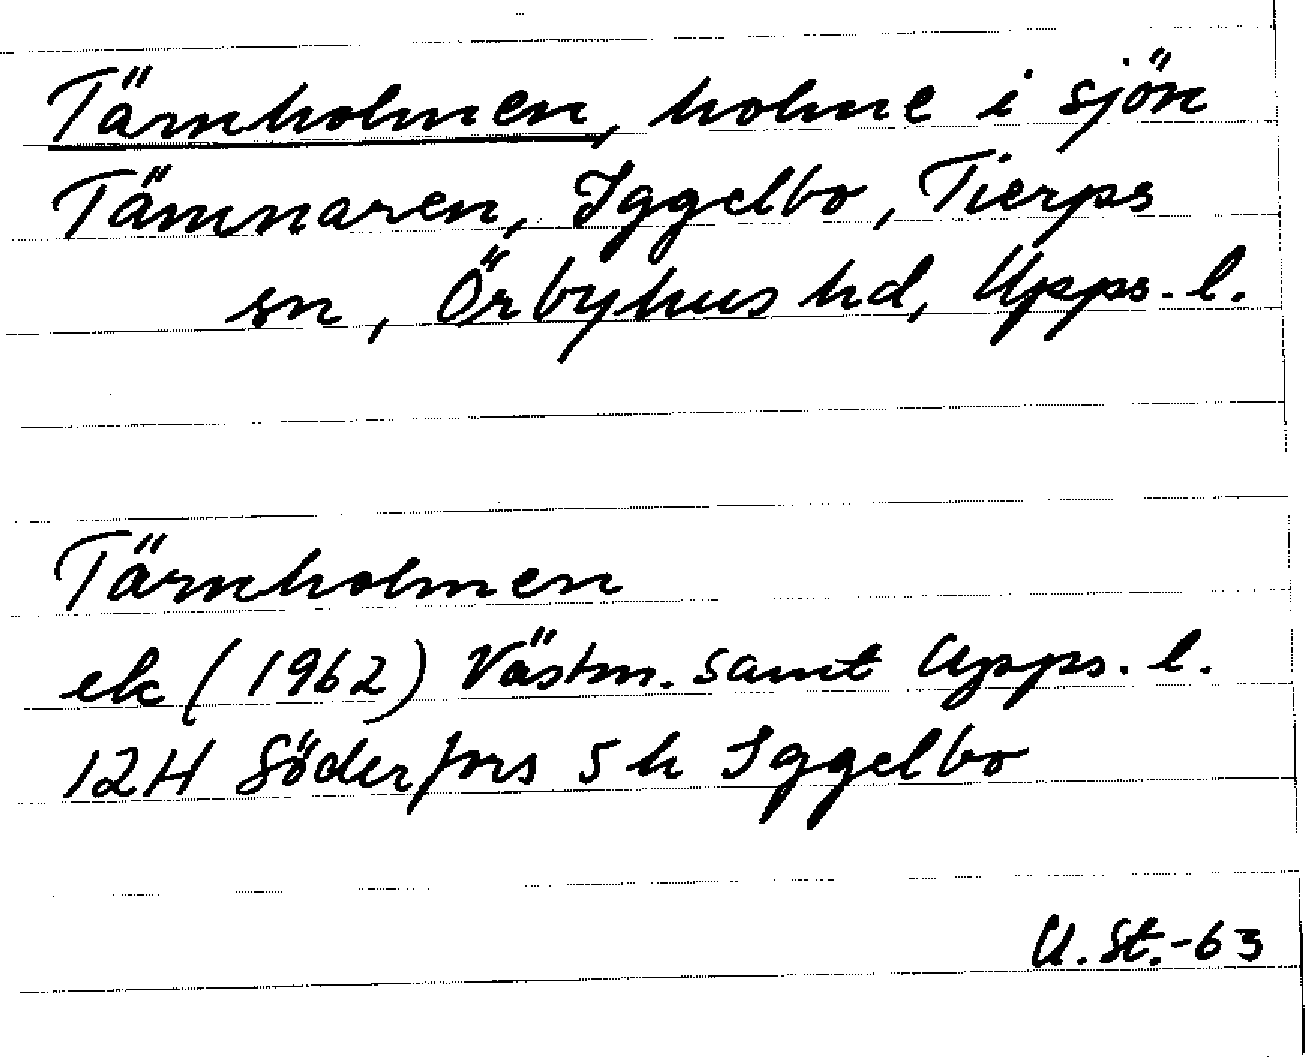 Tärnholmen, holme i sjön
Tämnaren, Iggelbo, Tierps
sn, Örbyhus hd, Upps. l.
Tärnholmen
ek (1962) Västm. samt Upps. l.
12H Söderfors 5 h Iggelbo
U. St.-63